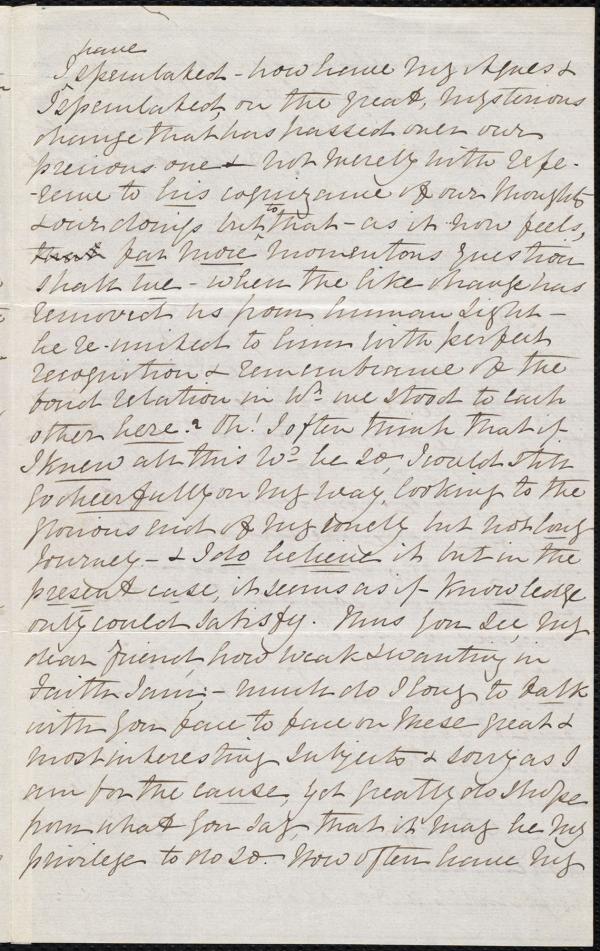 have
I speculated - how have my Agnes &
I speculated, on the great, mysterious
change that has passed over our
precious one & not merely with refe-
-rence to his cognizance of our thoughts
& our doings but to that - as it now feels,
far more momentous question
shall we - when the like change has
removed us from human sight -
be re-united to him with perfect
recognition & remembrance of the
bond relation in wh. we stood to each
other here? Oh! I often think that if
I knew all this wd. be so, I could still
go cheerfully on my way, looking to the
glorious end of my lonely but not long
journey - & I do believe it but in the
present case, it seems as if knowledge
only could satisfy. Thus you see, my
dear friend, how weak & wanting in
faith I am; - much do I long to talk
with you face to face on these great &
most interesting subjects & sorry as I
am for the cause, yet greatly do I hope
from what you say, that it may be my
privilege to do so. How often have my